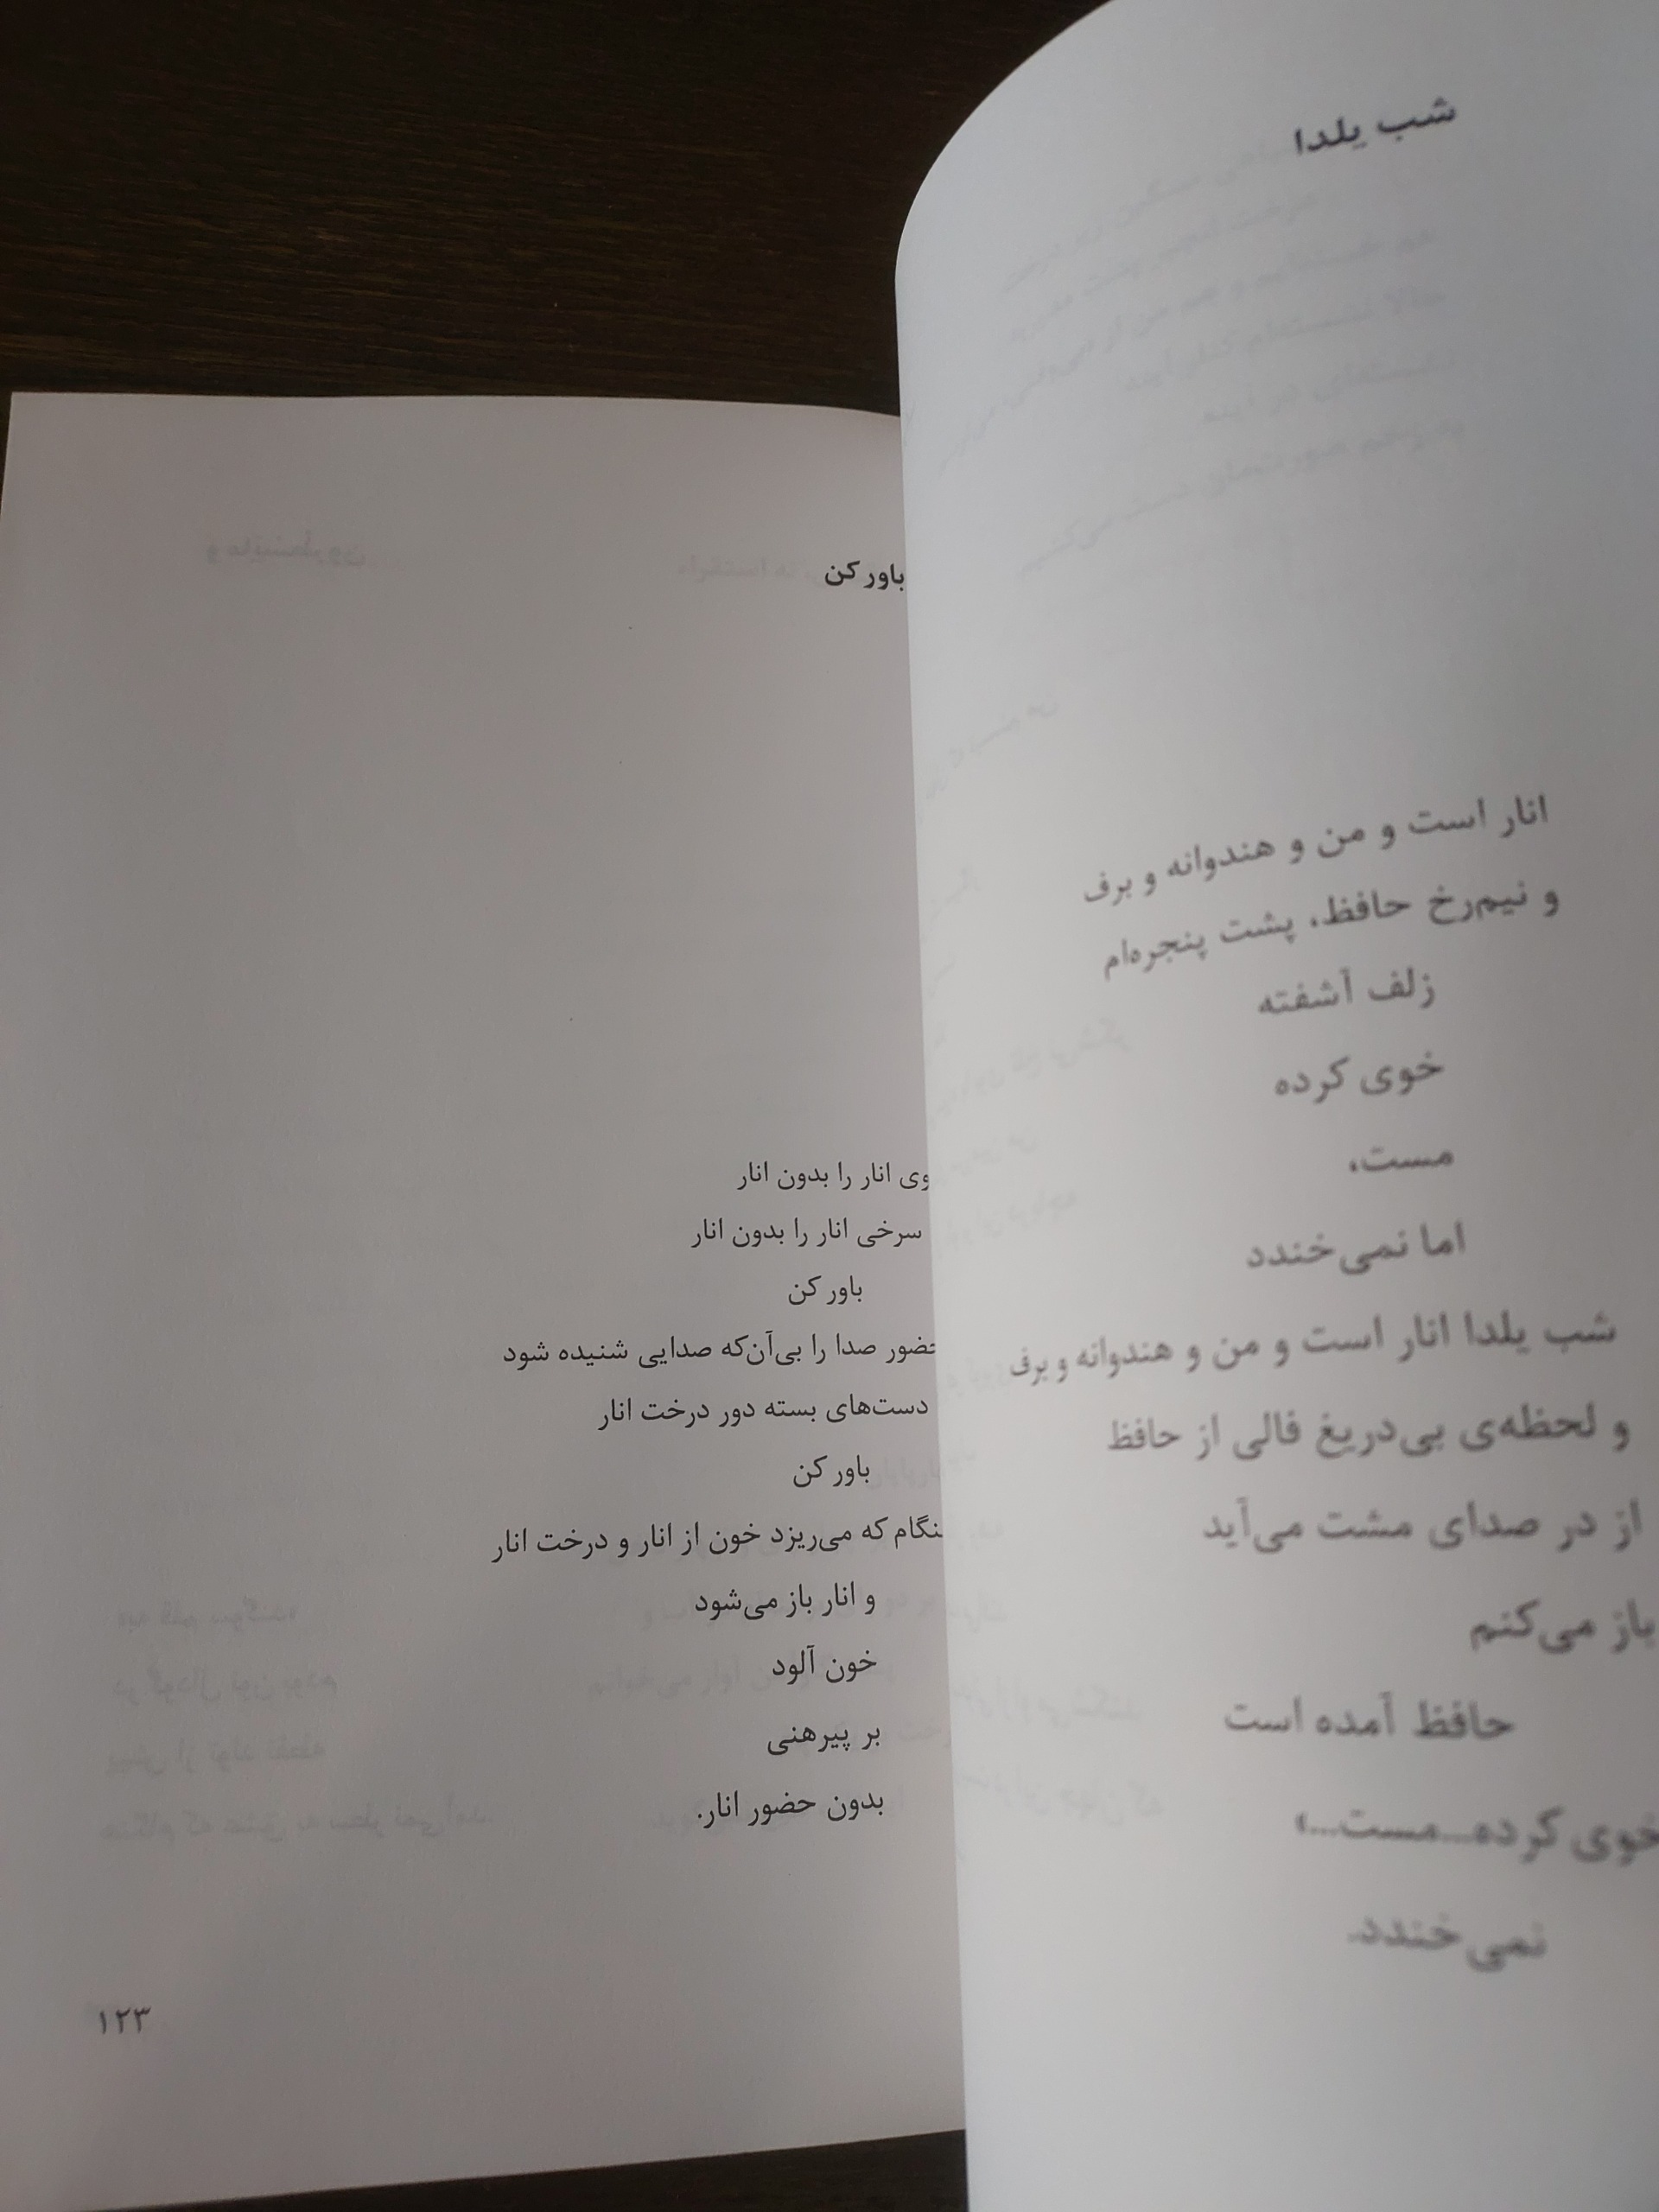 شب یلدا
انار است و من و هندوانه و برف
و نیم‌رخ حافظ، پشت پنجره‌ام
زلف آشفته
خوی کرده
مست،
اما نمی‌خندد
شب یلدا انار است و من و هندوانه و برف
و لحظه‌ی بی‌دریغ فالی از حافظ
از در صدای مشت می‌آید
باز می‌کنم
حافظ آمده است
خوی کرده...مست...،
نمی‌خندد.
باور کن
انار را بدون انار
سرخی انار را بدون انار
باور کن
حضور صدا را بی‌آن‌که صدایی شنیده شود
دست‌های بسته دور درخت انار
باور کن
که می‌ریزد خون از انار و درخت انار
و انار باز می‌شود
خون آلود
بر پیرهنی
بدون حضور انار.
۱۲۳